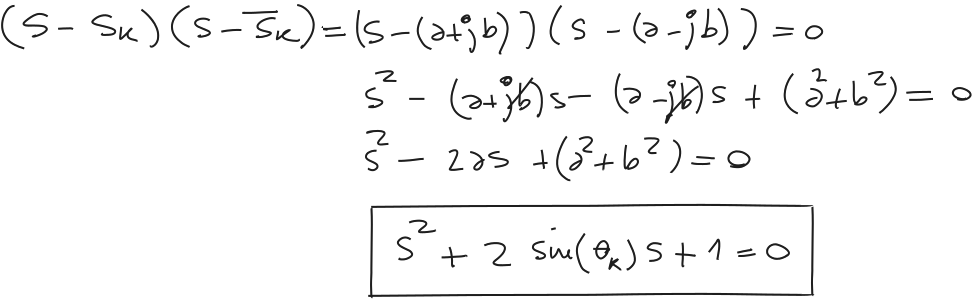 (S - S_k)(S - \overline{S_k}) = (S - (a+jb))(S - (a-jb)) = 0
S² - (a+jb)s - (a-jb)s + (a²+b²) = 0
S² - 2as + (a²+b²) = 0
S² + 2 sin(θ_k) S + 1 = 0